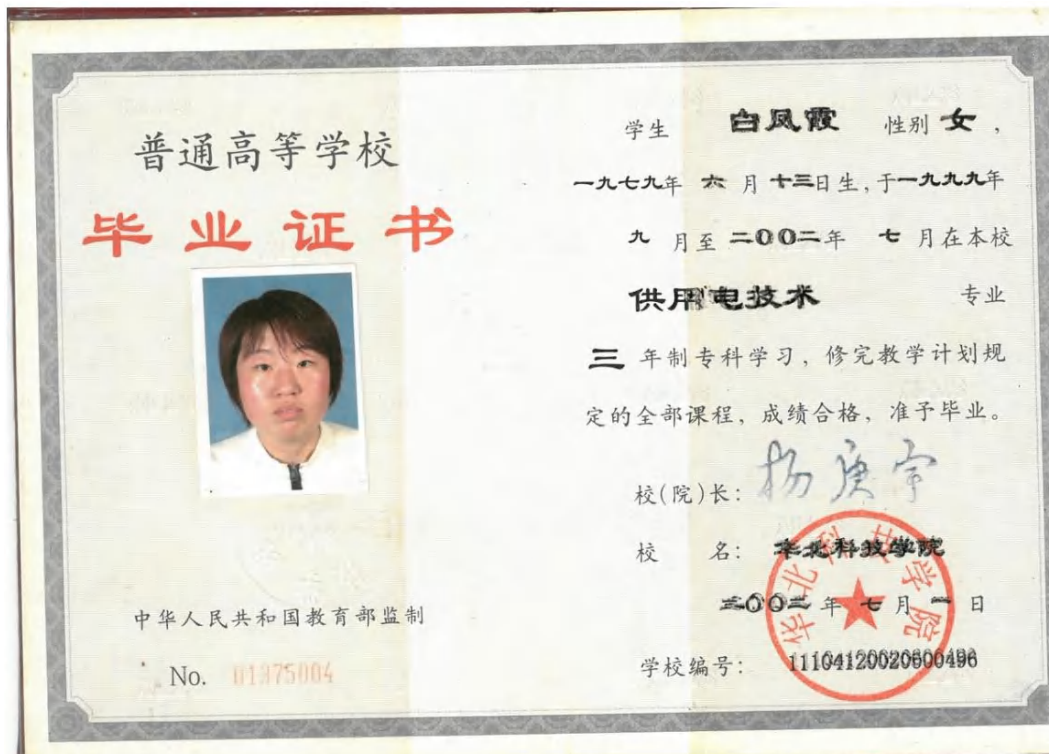 普通高等学校
毕业证书
中华人民共和国教育部监制
No. 01375004
学生 白凤霞 性别 女，
一九七九年 六 月 十三日生，于一九九九年
九 月至 二〇〇二年 七 月在本校
供用电技术 专业
三 年制专科学习，修完教学计划规
定的全部课程，成绩合格，准予毕业。
校(院)长： 杨庚宇
校 名： 华北科技学院
二〇〇二 年 七 月 一 日
华北科技学院
学校编号：